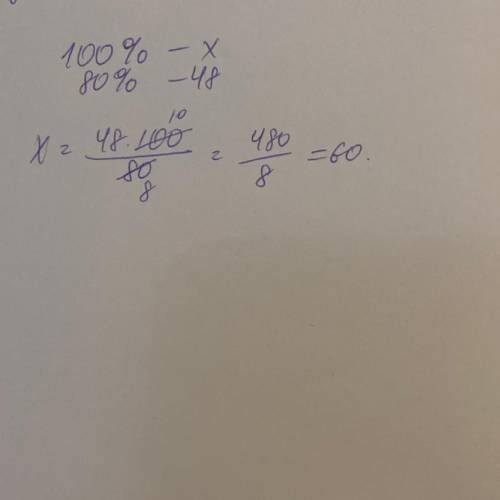 100% – x
80% – 48
x = 48·100 10 / 80 8 = 480/8 = 60.